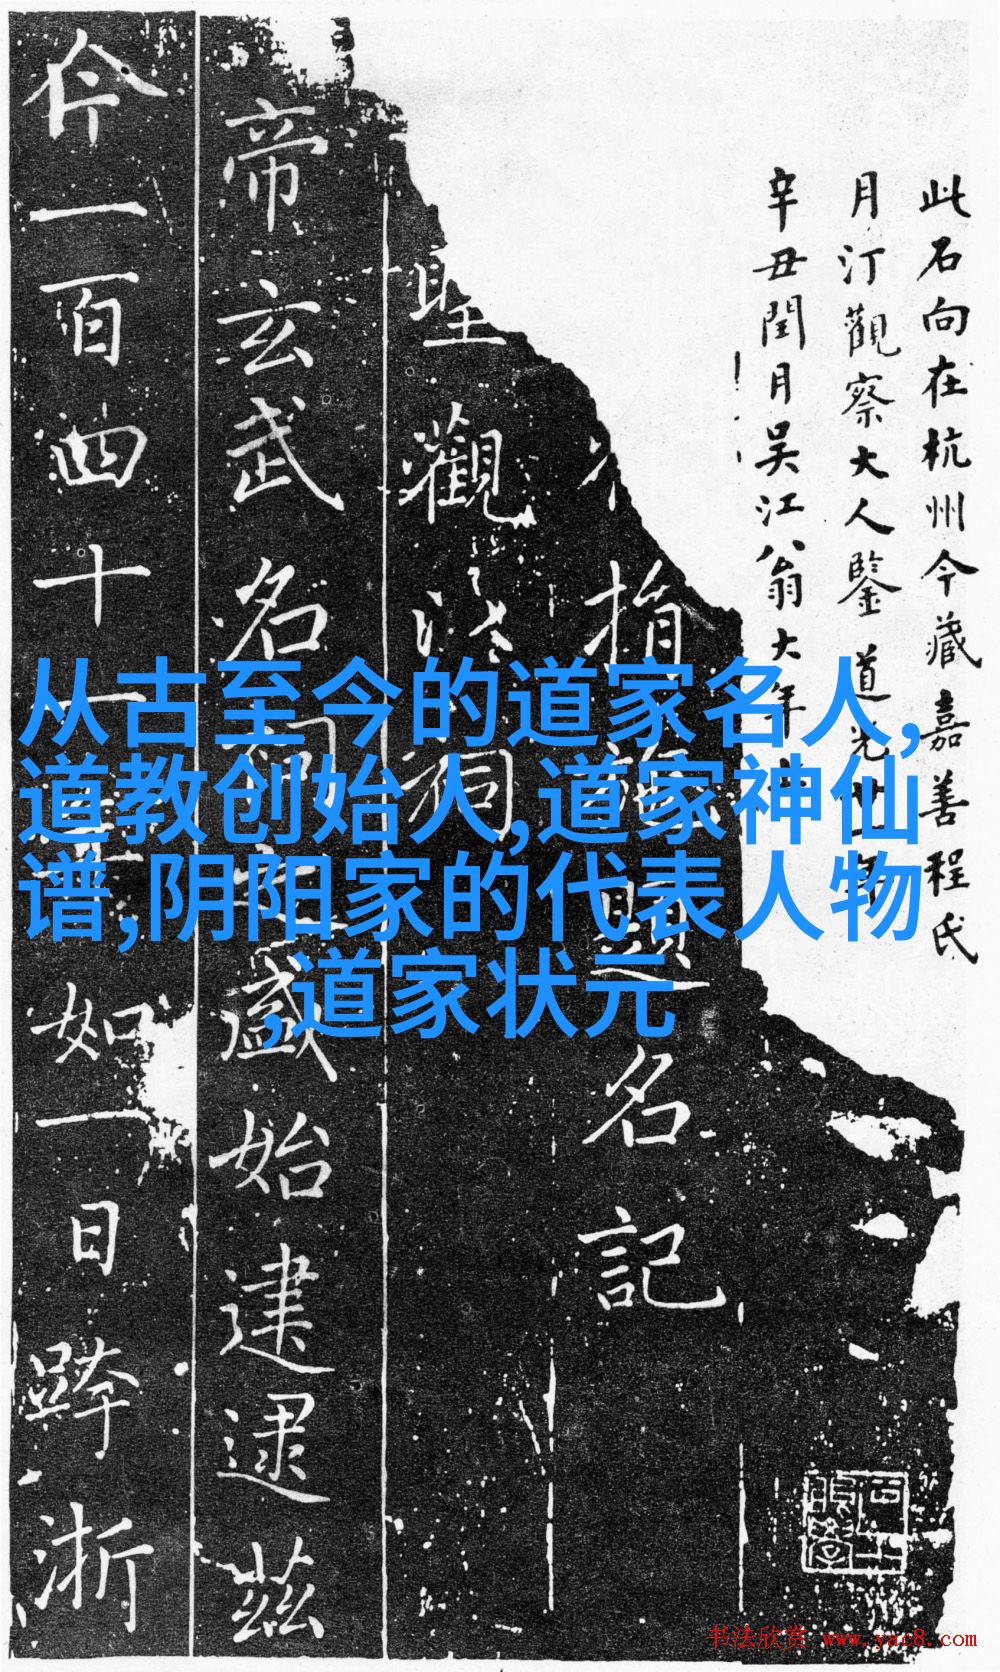 此石向在杭州今藏嘉善程氏
月汀觀察大人鑒道光
辛丑閏月吳江翁大年
指題名記
聖觀洞
帝玄武名祠盛始建逮茲
一百四十一如一日跨浙
从古至今的道家名人,
道教创始人,道家神仙
谱,阴阳家的代表人物
,道家状元
书法欣赏 www.yac8.com